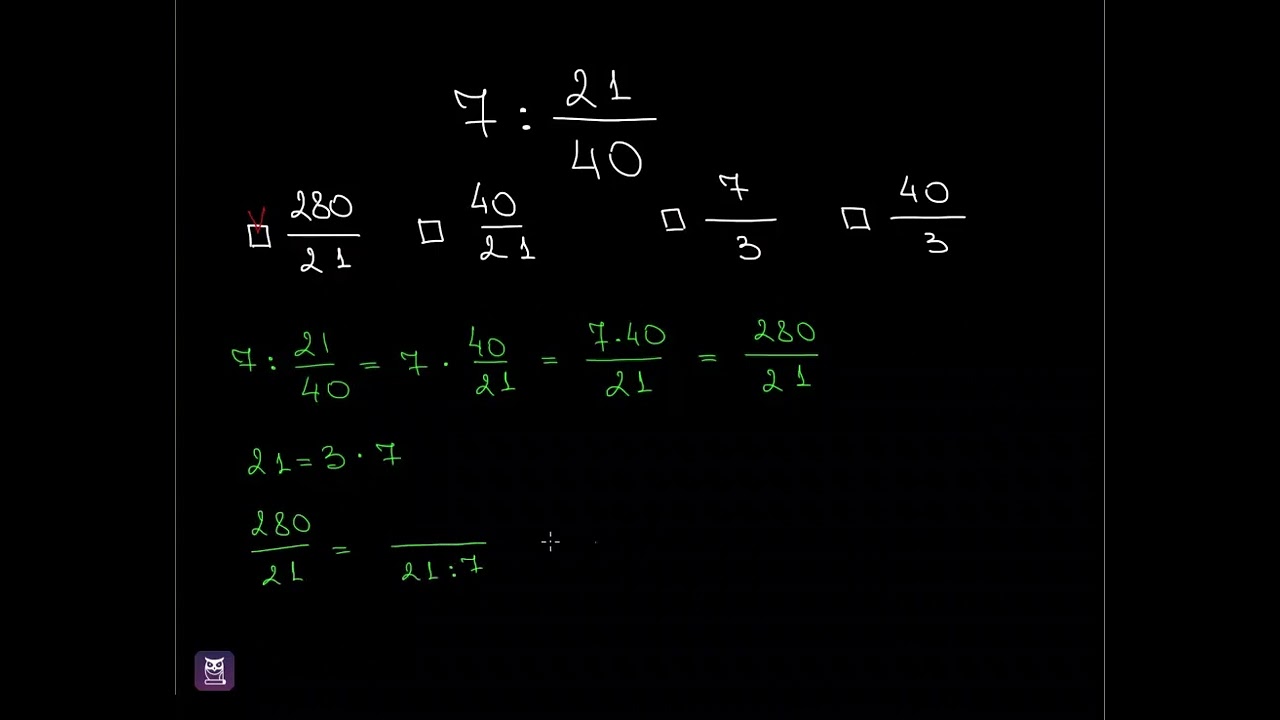 7 : 21/40
☑ 280/21 ☐ 40/21 ☐ 7/3 ☐ 40/3
7 : 21/40 = 7 · 40/21 = 7·40/21 = 280/21
21 = 3 · 7
280/21 = /21:7